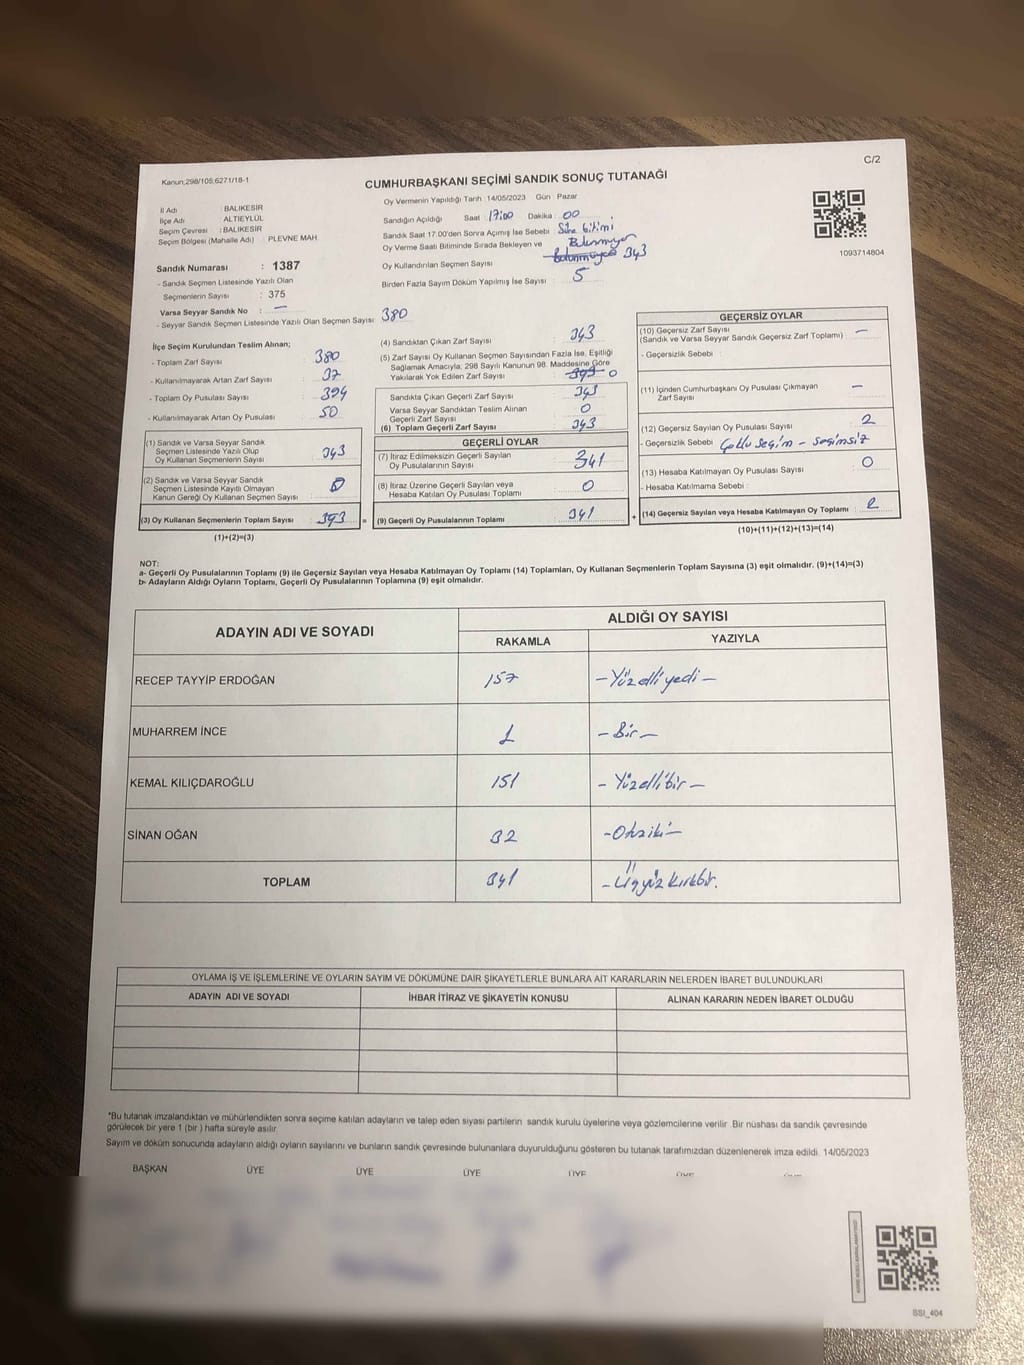 C/2
Kanun;298/105;6271/18-1
CUMHURBAŞKANI SEÇİMİ SANDIK SONUÇ TUTANAĞI
İl Adı : BALIKESİR
İlçe Adı : ALTIEYLÜL
Seçim Çevresi : BALIKESİR
Seçim Bölgesi (Mahalle Adı) PLEVNE MAH.
Sandık Numarası : 1387
- Sandık Seçmen Listesinde Yazılı Olan
Seçmenlerin Sayısı : 375
Varsa Seyyar Sandık No : —
- Seyyar Sandık Seçmen Listesinde Yazılı Olan Seçmen Sayısı 380
Oy Vermenin Yapıldığı Tarih 14/05/2023 Gün Pazar
Sandığın Açıldığı Saat 17:00 Dakika : 00
Sandık Saat 17.00'den Sonra Açımış İse Sebebi Süre bitimi
Oy Verme Saati Bitiminde Sırada Bekleyen ve Bulunmuyor
Oy Kullandırılan Seçmen Sayısı 343
Birden Fazla Sayım Döküm Yapılmış İse Sayısı : 5
1093714804
İlçe Seçim Kurulundan Teslim Alınan;
- Toplam Zarf Sayısı : 380
- Kullanılmayarak Artan Zarf Sayısı : 37
- Toplam Oy Pusulası Sayısı : 394
- Kullanılmayarak Artan Oy Pusulası : 50
(1) Sandık ve Varsa Seyyar Sandık
Seçmen Listesinde Yazılı Olup
Oy Kullanan Seçmenlerin Sayısı : 343
(2) Sandık ve Varsa Seyyar Sandık
Seçmen Listesinde Kayıtlı Olmayan
Kanun Gereği Oy Kullanan Seçmen Sayısı : 0
(3) Oy Kullanan Seçmenlerin Toplam Sayısı : 343 =
(1)+(2)=(3)
(4) Sandıktan Çıkan Zarf Sayısı : 343
(5) Zarf Sayısı Oy Kullanan Seçmen Sayısından Fazla İse, Eşitliği
Sağlamak Amacıyla, 298 Sayılı Kanunun 98. Maddesine Göre
Yakılarak Yok Edilen Zarf Sayısı : 0
Sandıkta Çıkan Geçerli Zarf Sayısı : 343
Varsa Seyyar Sandıktan Teslim Alınan
Geçerli Zarf Sayısı : 0
(6) Toplam Geçerli Zarf Sayısı : 343
GEÇERLİ OYLAR
(7) İtiraz Edilmeksizin Geçerli Sayılan
Oy Pusulalarının Sayısı : 341
(8) İtiraz Üzerine Geçerli Sayılan veya
Hesaba Katılan Oy Pusulası Toplamı : 0
(9) Geçerli Oy Pusulalarının Toplamı : 341 +
GEÇERSİZ OYLAR
(10) Geçersiz Zarf Sayısı : —
(Sandık ve Varsa Seyyar Sandık Geçersiz Zarf Toplamı)
- Geçersizlik Sebebi :
(11) İçinden Cumhurbaşkanı Oy Pusulası Çıkmayan
Zarf Sayısı : —
(12) Geçersiz Sayılan Oy Pusulası Sayısı : 2
- Geçersizlik Sebebi Çoklu Seçim - seçimsiz
(13) Hesaba Katılmayan Oy Pusulası Sayısı : 0
- Hesaba Katılmama Sebebi :
(14) Geçersiz Sayılan veya Hesaba Katılmayan Oy Toplamı : 2
(10)+(11)+(12)+(13)=(14)
NOT:
a- Geçerli Oy Pusulalarının Toplamı (9) ile Geçersiz Sayılan veya Hesaba Katılmayan Oy Toplamı (14) Toplamları, Oy Kullanan Seçmenlerin Toplam Sayısına (3) eşit olmalıdır. (9)+(14)=(3)
b- Adayların Aldığı Oyların Toplamı, Geçerli Oy Pusulalarının Toplamına (9) eşit olmalıdır.
ADAYIN ADI VE SOYADI ALDIĞI OY SAYISI
RAKAMLA YAZIYLA
RECEP TAYYİP ERDOĞAN 157 - Yüzelliyedi -
MUHARREM İNCE 1 - Bir -
KEMAL KILIÇDAROĞLU 151 - Yüzellibir -
SİNAN OĞAN 32 - Otuziki -
TOPLAM 341 - Üçyüzkırkbir.
OYLAMA İŞ VE İŞLEMLERİNE VE OYLARIN SAYIM VE DÖKÜMÜNE DAİR ŞİKAYETLERLE BUNLARA AİT KARARLARIN NELERDEN İBARET BULUNDUKLARI
ADAYIN ADI VE SOYADI İHBAR İTİRAZ VE ŞİKAYETİN KONUSU ALINAN KARARIN NEDEN İBARET OLDUĞU
*Bu tutanak imzalandıktan ve mühürlendikten sonra seçime katılan adayların ve talep eden siyasi partilerin sandık kurulu üyelerine veya gözlemcilerine verilir. Bir nüshası da sandık çevresinde
görülecek bir yere 1 (bir ) hafta süreyle asılır.
Sayım ve döküm sonucunda adayların aldığı oyların sayılarını ve bunların sandık çevresinde bulunanlara duyurulduğunu gösteren bu tutanak tarafımızdan düzenlenerek imza edildi. 14/05/2023
BAŞKAN ÜYE ÜYE ÜYE ÜYE ÜYE
SSI_404